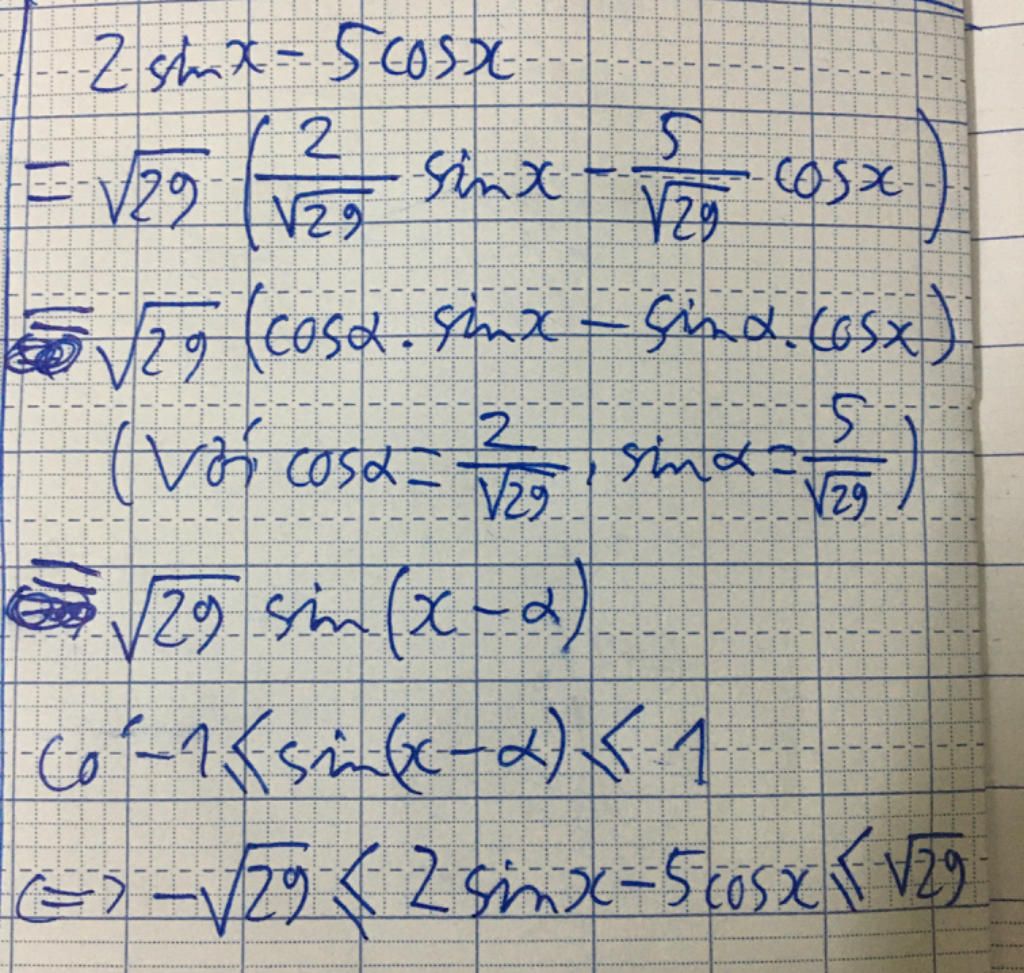 2 sin x - 5 cos x
= √29 (2/√29 sin x - 5/√29 cos x)
= √29 (cos α . sin x - sin α . cos x)
(Với cos α = 2/√29, sin α = 5/√29)
= √29 sin (x - α)
Có -1 ⩽ sin(x - α) ⩽ 1
<=> -√29 ⩽ 2 sin x - 5 cos x ⩽ √29